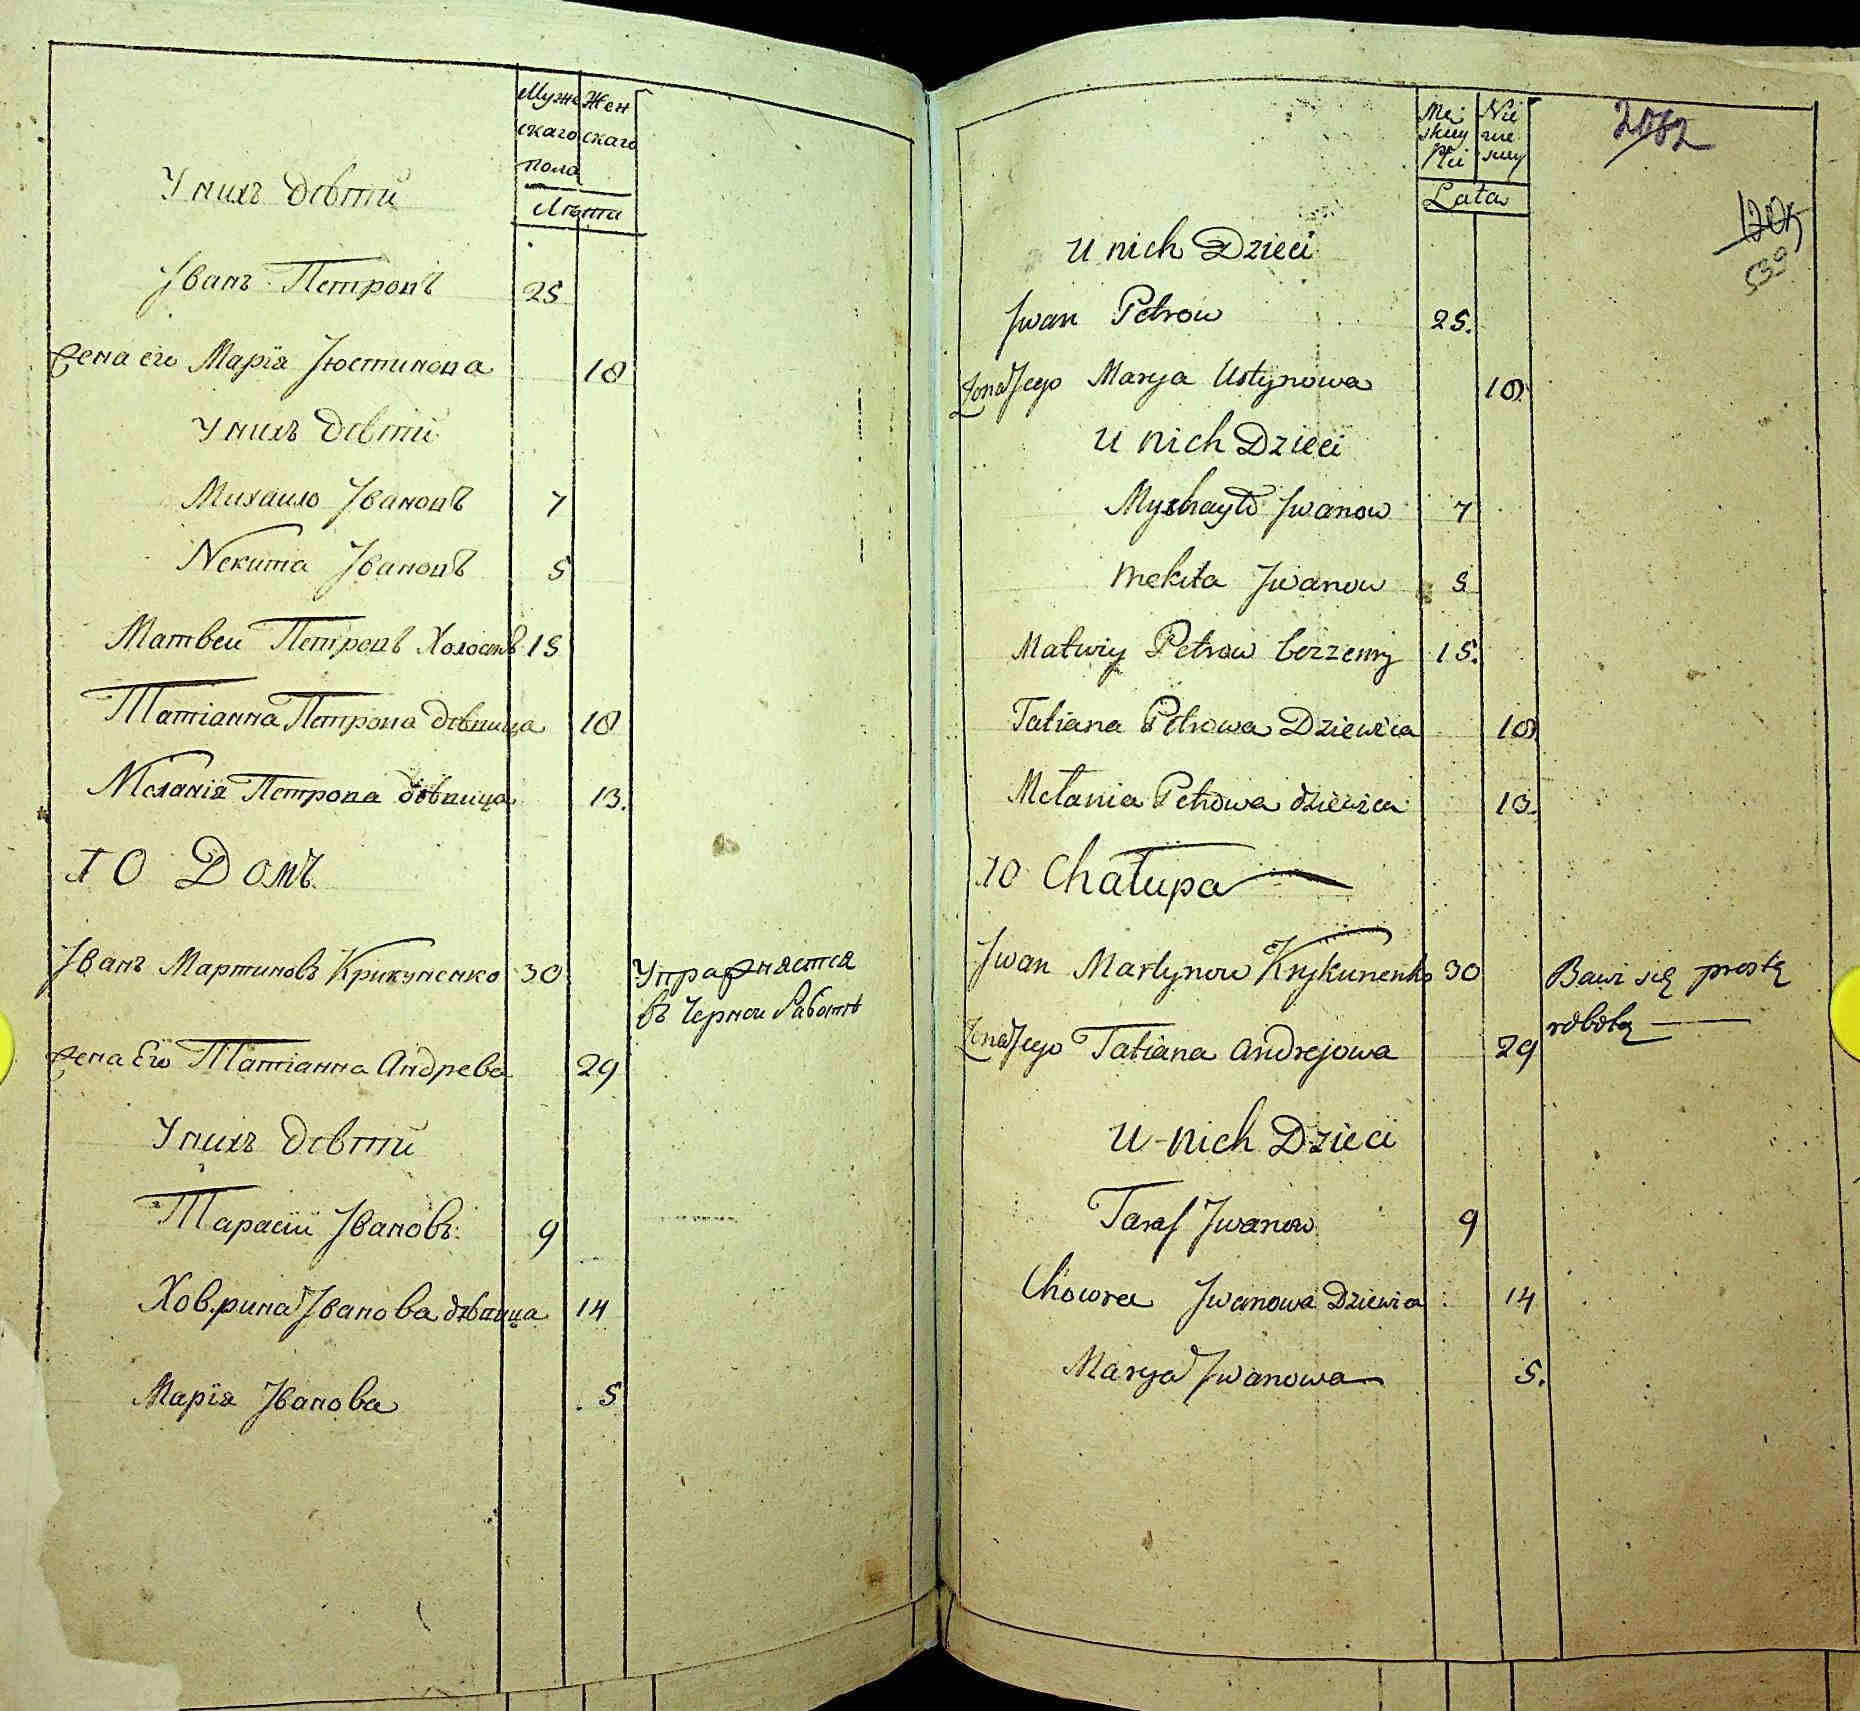 Муже Жен
скаго скаго
пола
Лѣта
У нихъ дѣти
Іванъ Петровъ 25
Жена его Марія Іюстинова 18
У нихъ дѣти
Михаило Івановъ 7
Никита Івановъ 5
Матвеи Петровъ Холостъ 15
Татіанна Петрова дѣвица 18
Меланія Петрова дѣвица 13.
10 Домъ
Іванъ Мартиновъ Крикуненко 30 Упражняется
въ Черной Работѣ
Жена Его Татіанна Андрева 29
У нихъ дѣти
Тарасіи Івановъ 9
Ховрина Іванова дѣвица 14
Марія Іванова 5
2082
539
Mę Nie
skiey wie
Płci sciey
Lata
U nich Dzieci
Jwan Petrow 25.
Żona Jego Marya Ustynowa 18.
U nich Dzieci
Mychayło Jwanow 7
Mekita Jwanow 5
Matwiy Petrow bezzenny 15.
Tatiana Petrowa Dziewica 18
Mełania Petrowa dziewica 13.
10 Chałupa
Jwan Martynow Krykunenko 30 Bawi się prostą
robotą
Żona Jego Tatiana Andrejowa 29
U nich Dzieci
Taras Jwanow 9
Chowra Jwanowa Dziewica 14
Marya Jwanowa 5.